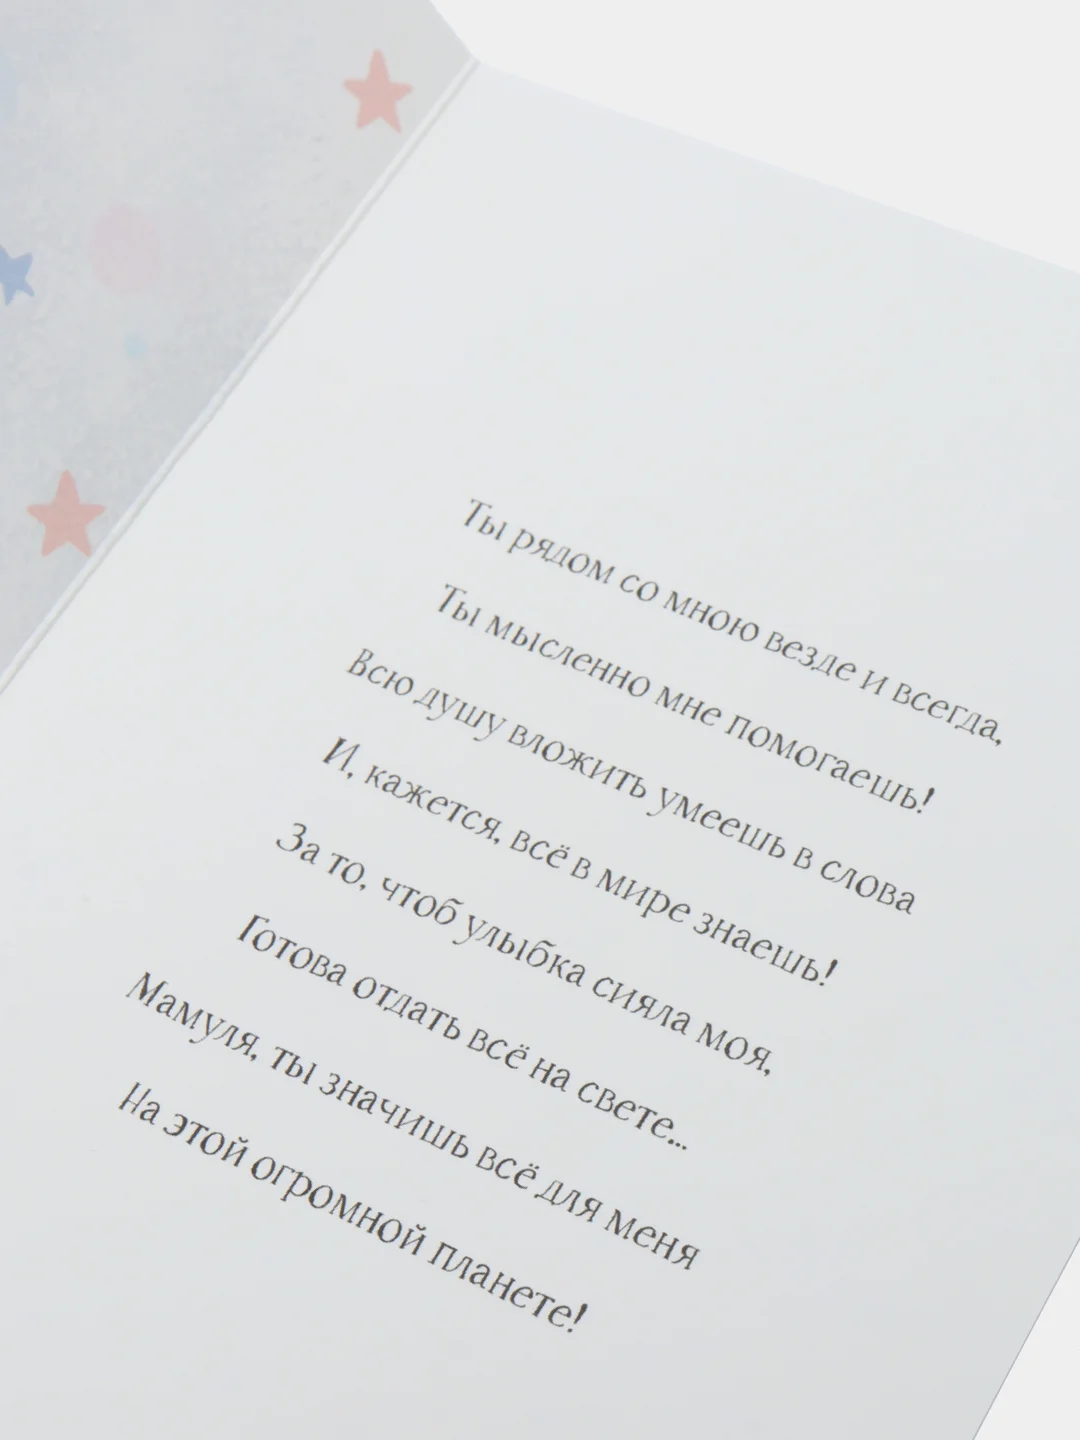 Ты рядом со мною везде и всегда,
Ты мысленно мне помогаешь!
Всю душу вложить умеешь в слова
И, кажется, всё в мире знаешь!
За то, чтоб улыбка сияла моя,
Готова отдать всё на свете...
Мамуля, ты значишь всё для меня
На этой огромной планете!